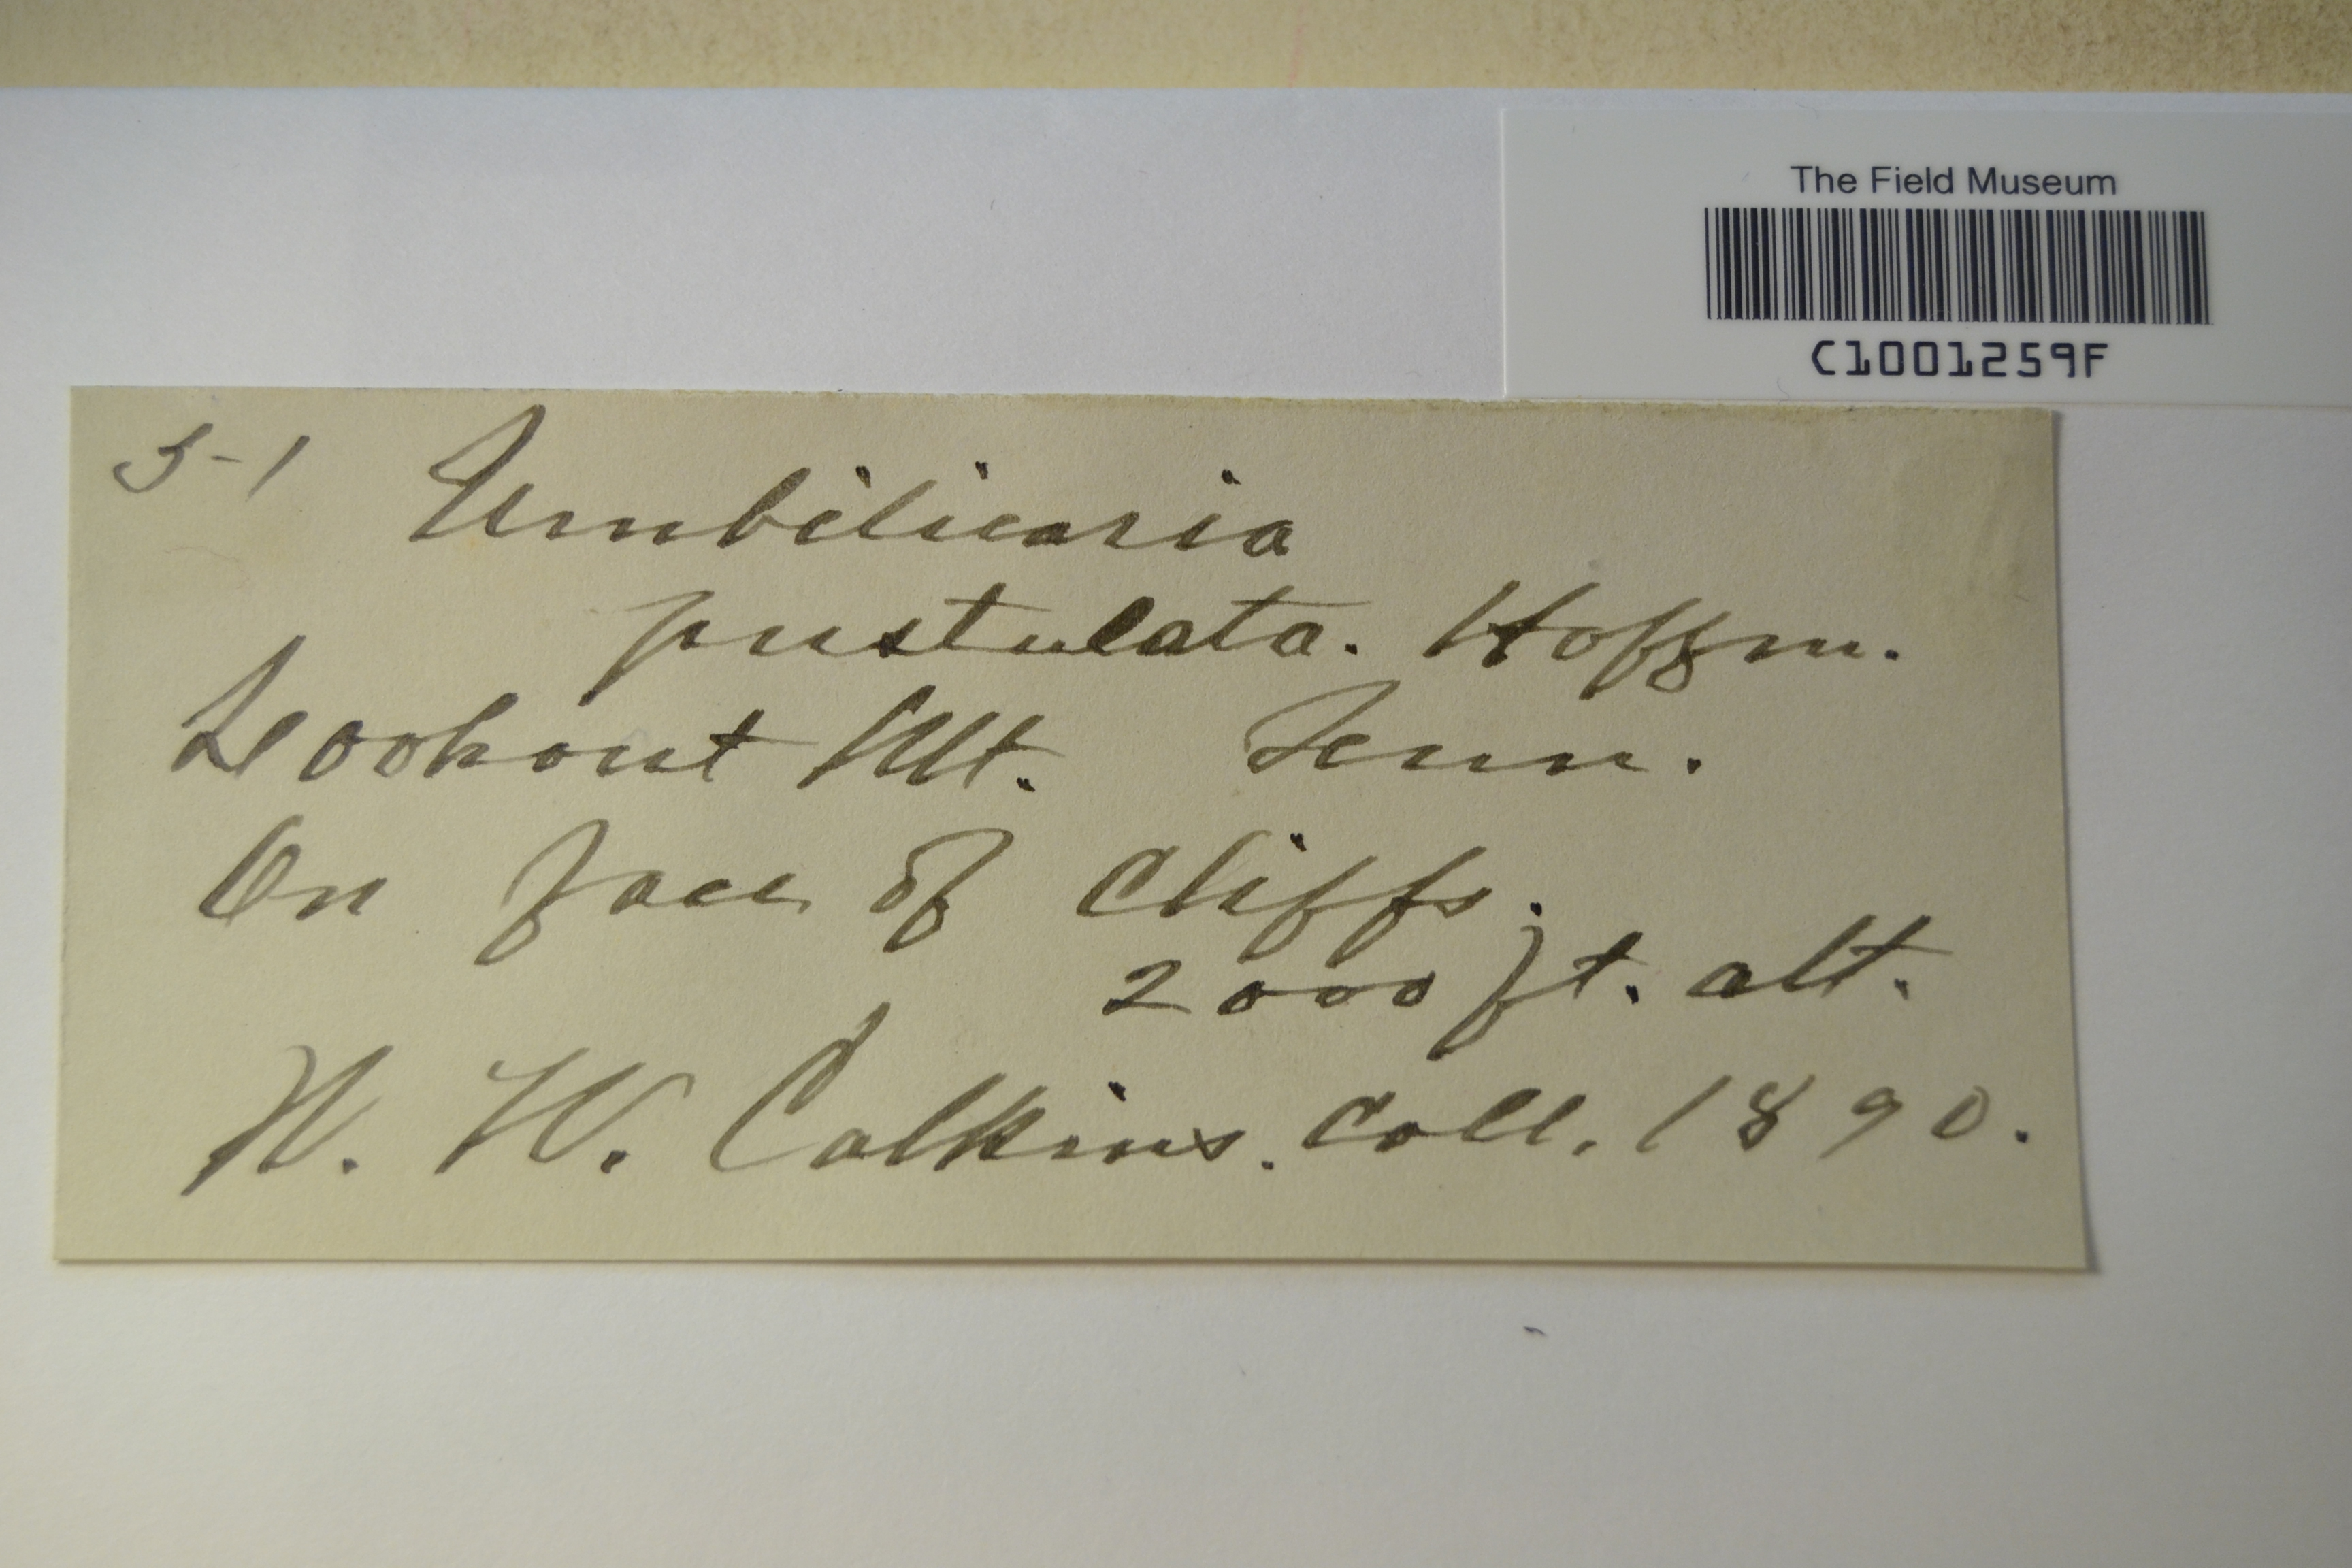 The Field Museum
C1001259F
5-1 Umbilicaria
pustulata. Hoffm.
Lookout Mt. Tenn.
On face of Cliffs.
2000 ft. alt.
W. W. Calkins. Coll. 1890.